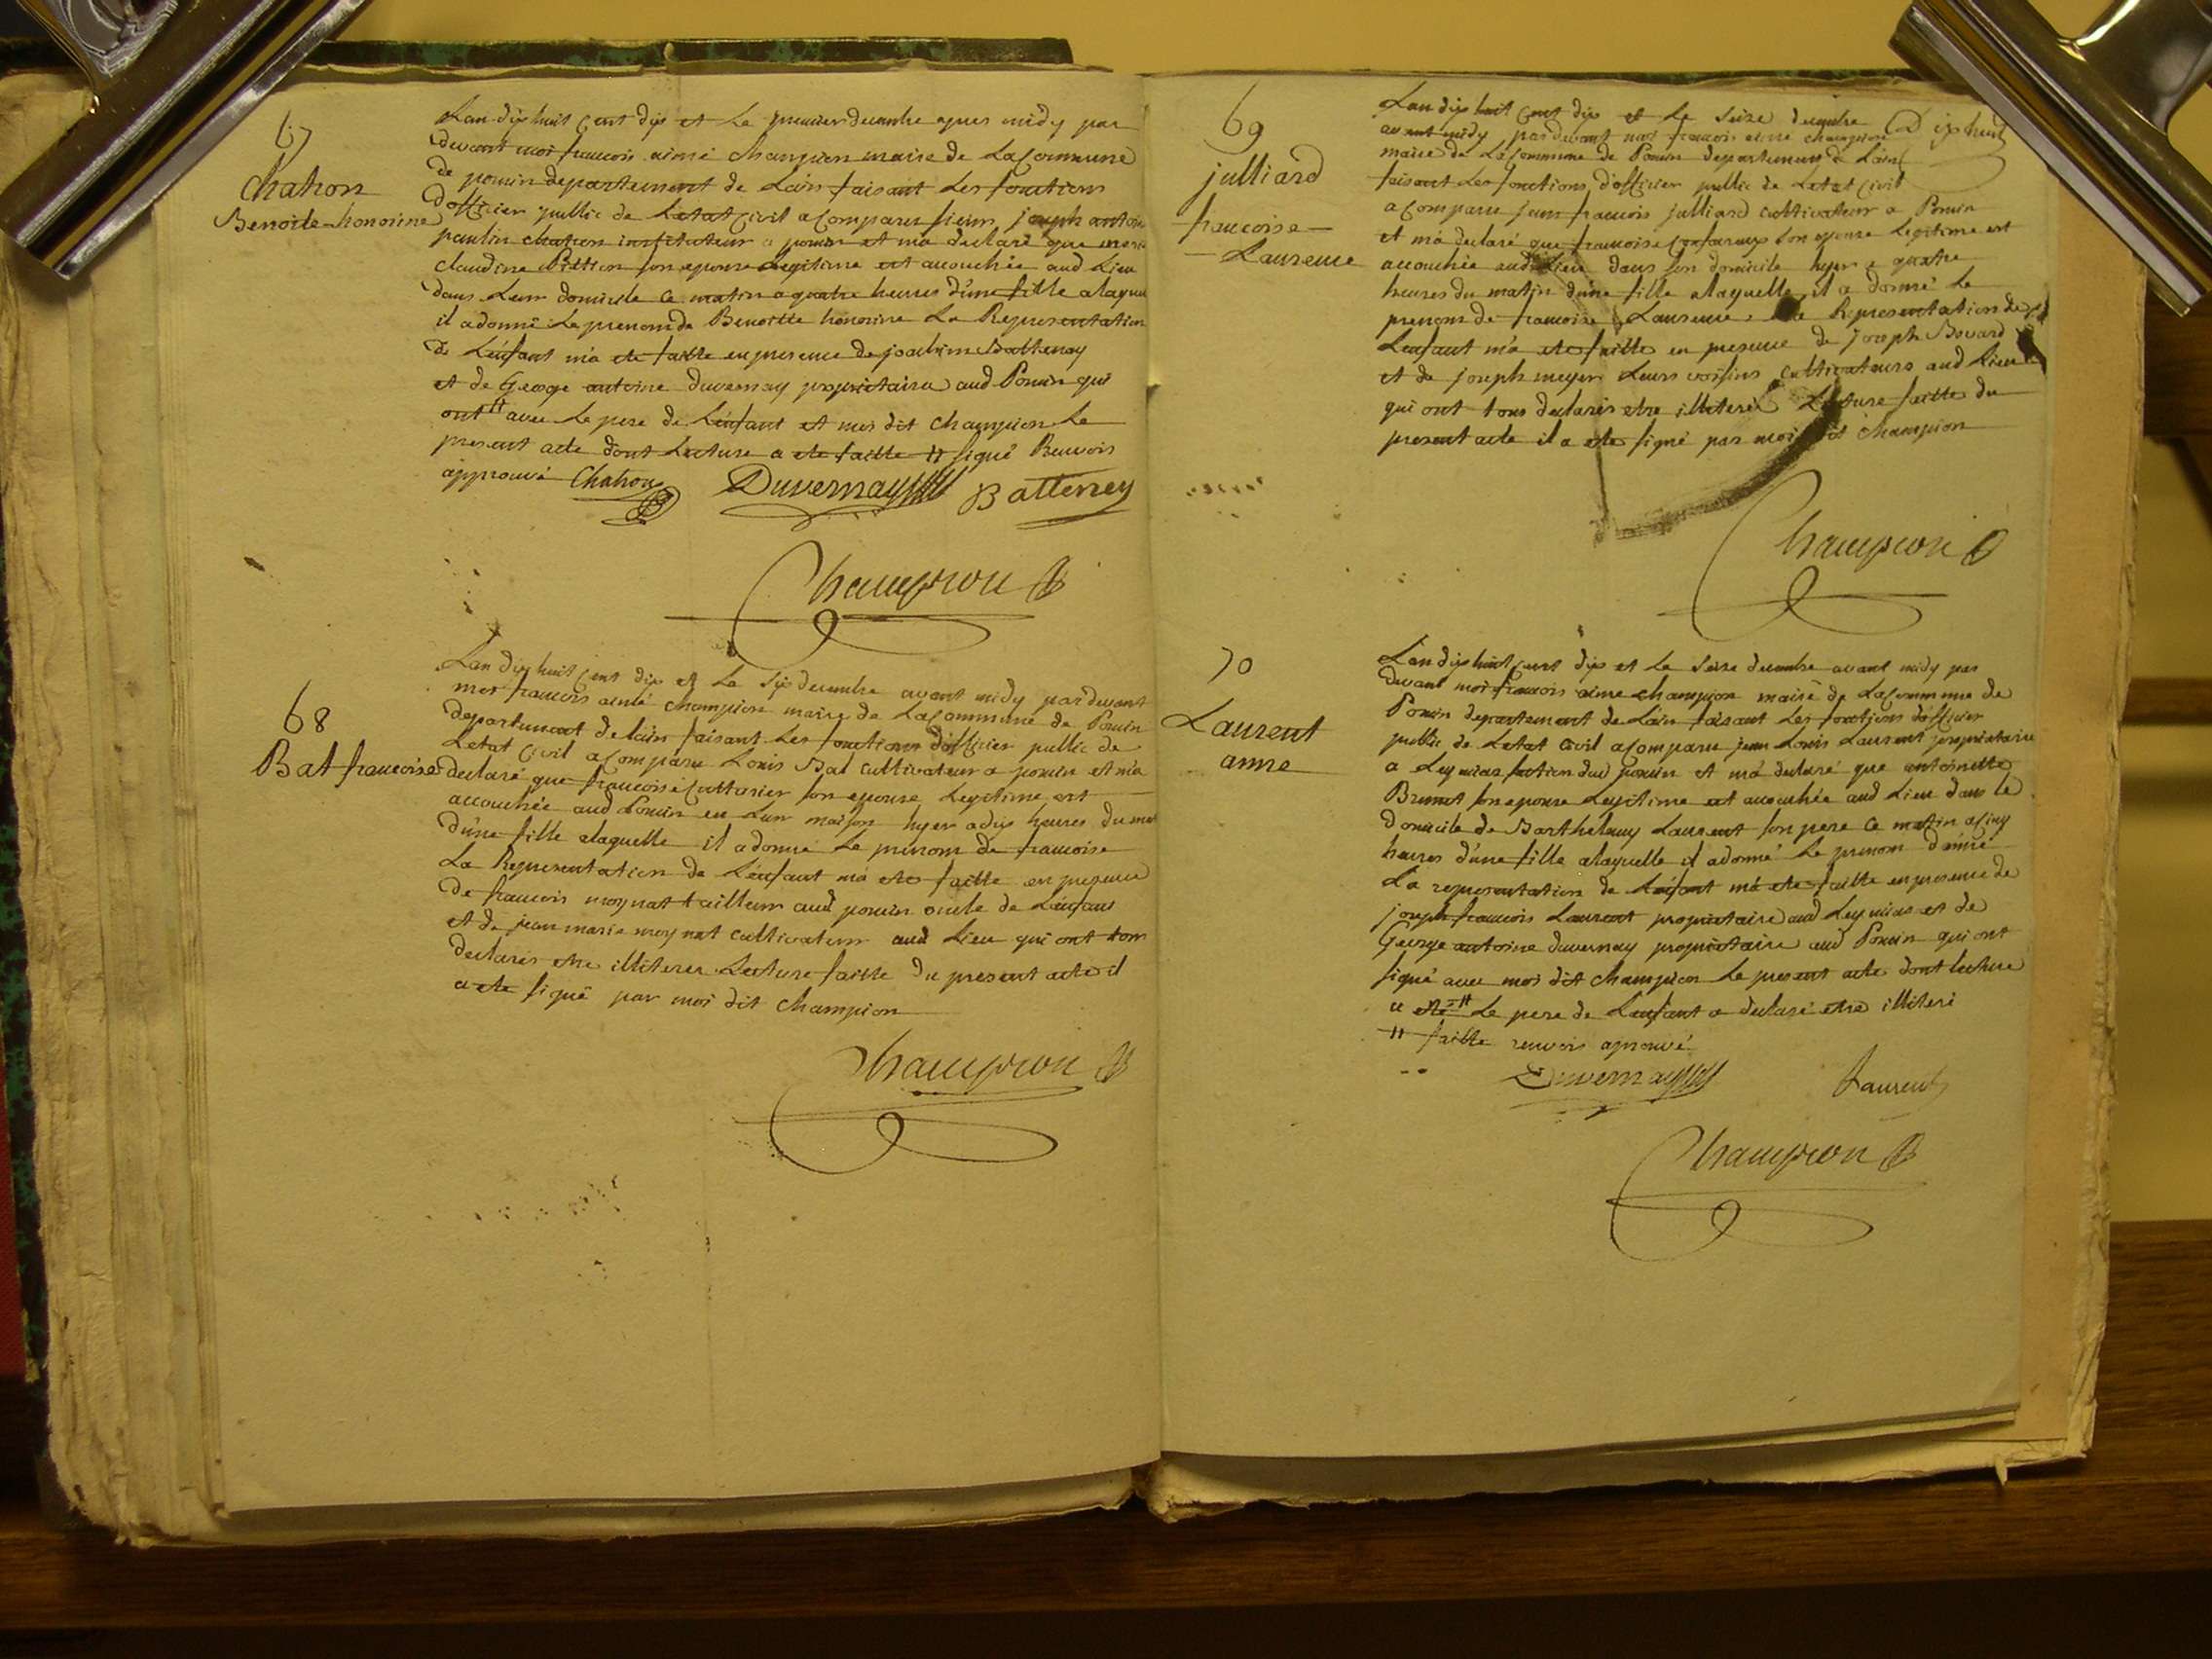 67
Chaton
Benoite honorine
Lan dix huit Cent dix et Le premier decembre apres midy par
devant moi francois aimé Champion maire de La Commune
de poncin departement de Lain faisant Les fonctions
dofficier public de Letat Civil a Comparu sieur joseph antoine
paulin chaton instituteur a poncin et ma declaré que marie
claudine son epouse Legitime est accouchée aud Lieu
dans Leur domicile Ce matin a quatre heures d'une fille alaquelle
il a donné Le prenom de Benoitte honorine La Representation
de Lenfant m'a ete faitte en presence de joachim Battenay
et de George antoine duvernay propriétaire aud Poncin qui
ont # avec Le pere de Lenfant et moi dit Champion Le
present acte dont Lecture a ete faitte # signé Renvois
approuvé Chaton Duvernay Batteney
Champion
68
Bat francoise
Lan dix huit Cent dix et Le six decembre avant midy pardevant
moi francois aimé Champion maire de La Commune de Poncin
departement de lain faisant Les fonctions dofficier public de
Letat Civil a Comparu Louis Bat Cultivateur a poncin et m'a
declaré que francoise son epouse Legitime est
accouchée aud Poncin en Leur maison hyer a dix heures du
d'une fille alaquelle il a donné Le prenom de francoise
La Representation de Lenfant ma ete faitte en presence
de francois moynat tailleur aud poncin oncle de Lenfant
et de jean marie moynat cultivateur aud Lieu qui ont tous
declarés etre illiterés Lecture faitte du present acte il
a ete signé par moi dit Champion
Champion
69
julliard
francoise
Laurence
Dix huit
Lan dix huit Cent dix et Le seize decembre
avant midy pardevant moi francois aimé champion
maire de La Commune de Poncin departement de Lain
faisant Les fonctions d'officier public de Letat Civil
a Comparu jean francois julliard cultivateur a Poncin
et m'a declaré que francoise son epouse Legitime est
accouchée aud Lieu dans son domicile hyer a quatre
heures du matin d'une fille alaquelle il a donné Le
prenom de francoise Laurence La Representation de
Lenfant m'a ete faitte en presence de joseph Bovard
et de joseph meyer Leurs voisins cultivateurs aud Lieu
qui ont tous declarés etre illiterés Lecture faitte du
present acte il a ete signé par moi dit Champion
Champion
70
Laurent
anne
Lan dix huit Cent dix et Le seize decembre avant midy par
devant moi francois aimé champion maire de La Commune de
Poncin departement de Lain faisant Les fonctions d'officier
public de Letat Civil a Comparu jean Louis Laurent propriétaire
a Leymias section dud poncin et m'a declaré que antoinette
Brunet son epouse Legitime est accouchée aud Lieu dans le
domicile de Barthelemy Laurent son pere Ce matin a Cinq
heures d'une fille alaquelle il a donné Le prenom d'anne
La representation de Lenfant m'a ete faitte en presence de
joseph francois Laurent propriétaire aud Leymias et de
George antoine duvernay propriétaire aud Poncin qui ont
signé avec moi dit Champion Le present acte dont lecture
a ete # Le pere de Lenfant a declaré etre illiteré
# faitte renvois aprouvé
Duvernay Laurent
Champion